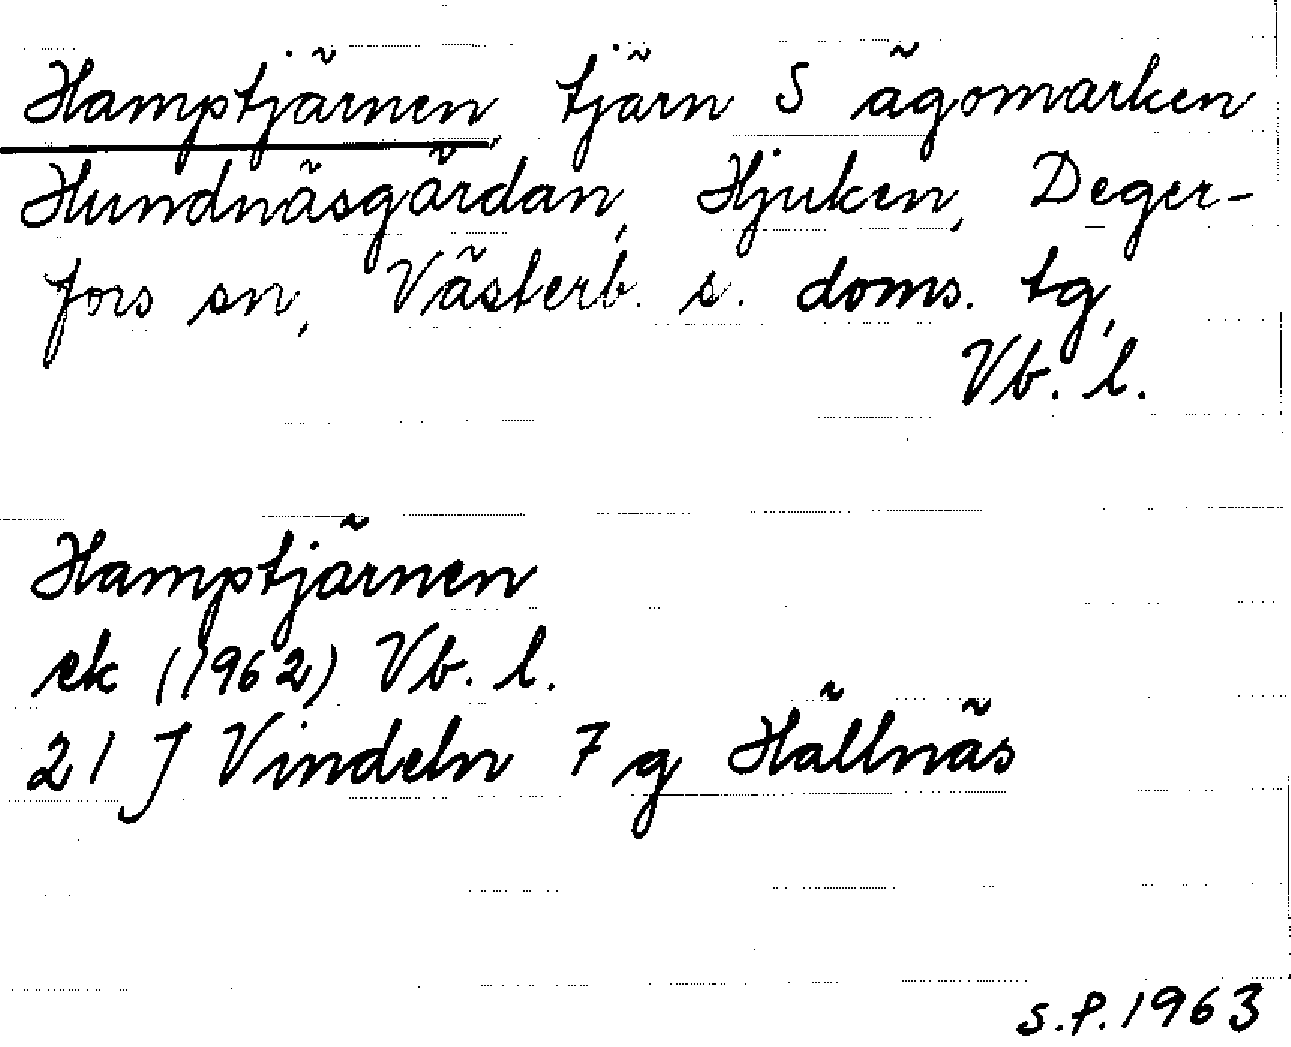 Hamptjärnen, tjärn S ägomarken
Hundnäsgärdan, Hjuken, Deger-
fors sn, Västerb. s. doms. tg,
Vb. l.
Hamptjärnen
ek (1962) Vb. l.
21 J Vindeln 7 g Hällnäs
S.P. 1963